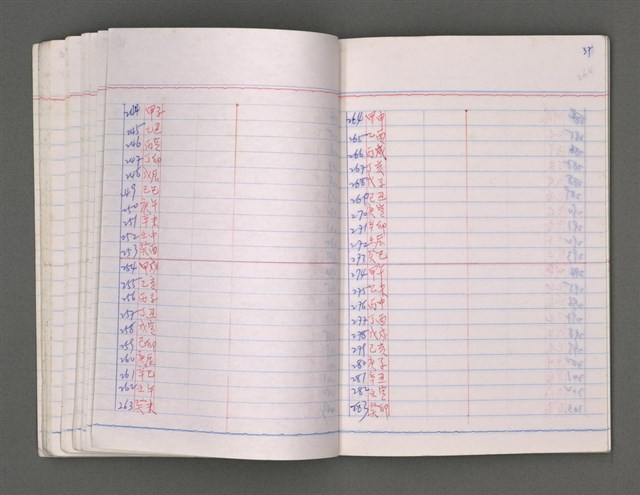 244 甲子
245 乙丑
246 丙寅
247 丁卯
248 戊辰
249 己巳
250 庚午
251 辛未
252 壬申
253 癸酉
254 甲戌
255 乙亥
256 丙子
257 丁丑
258 戊寅
259 己卯
260 庚辰
261 辛巳
262 壬午
263 癸未
264 甲申
265 乙酉
266 丙戌
267 丁亥
268 戊子
269 己丑
270 庚寅
271 辛卯
272 壬辰
273 癸巳
274 甲午
275 乙未
276 丙申
277 丁酉
278 戊戌
279 己亥
280 庚子
281 辛丑
282 壬寅
283 癸卯